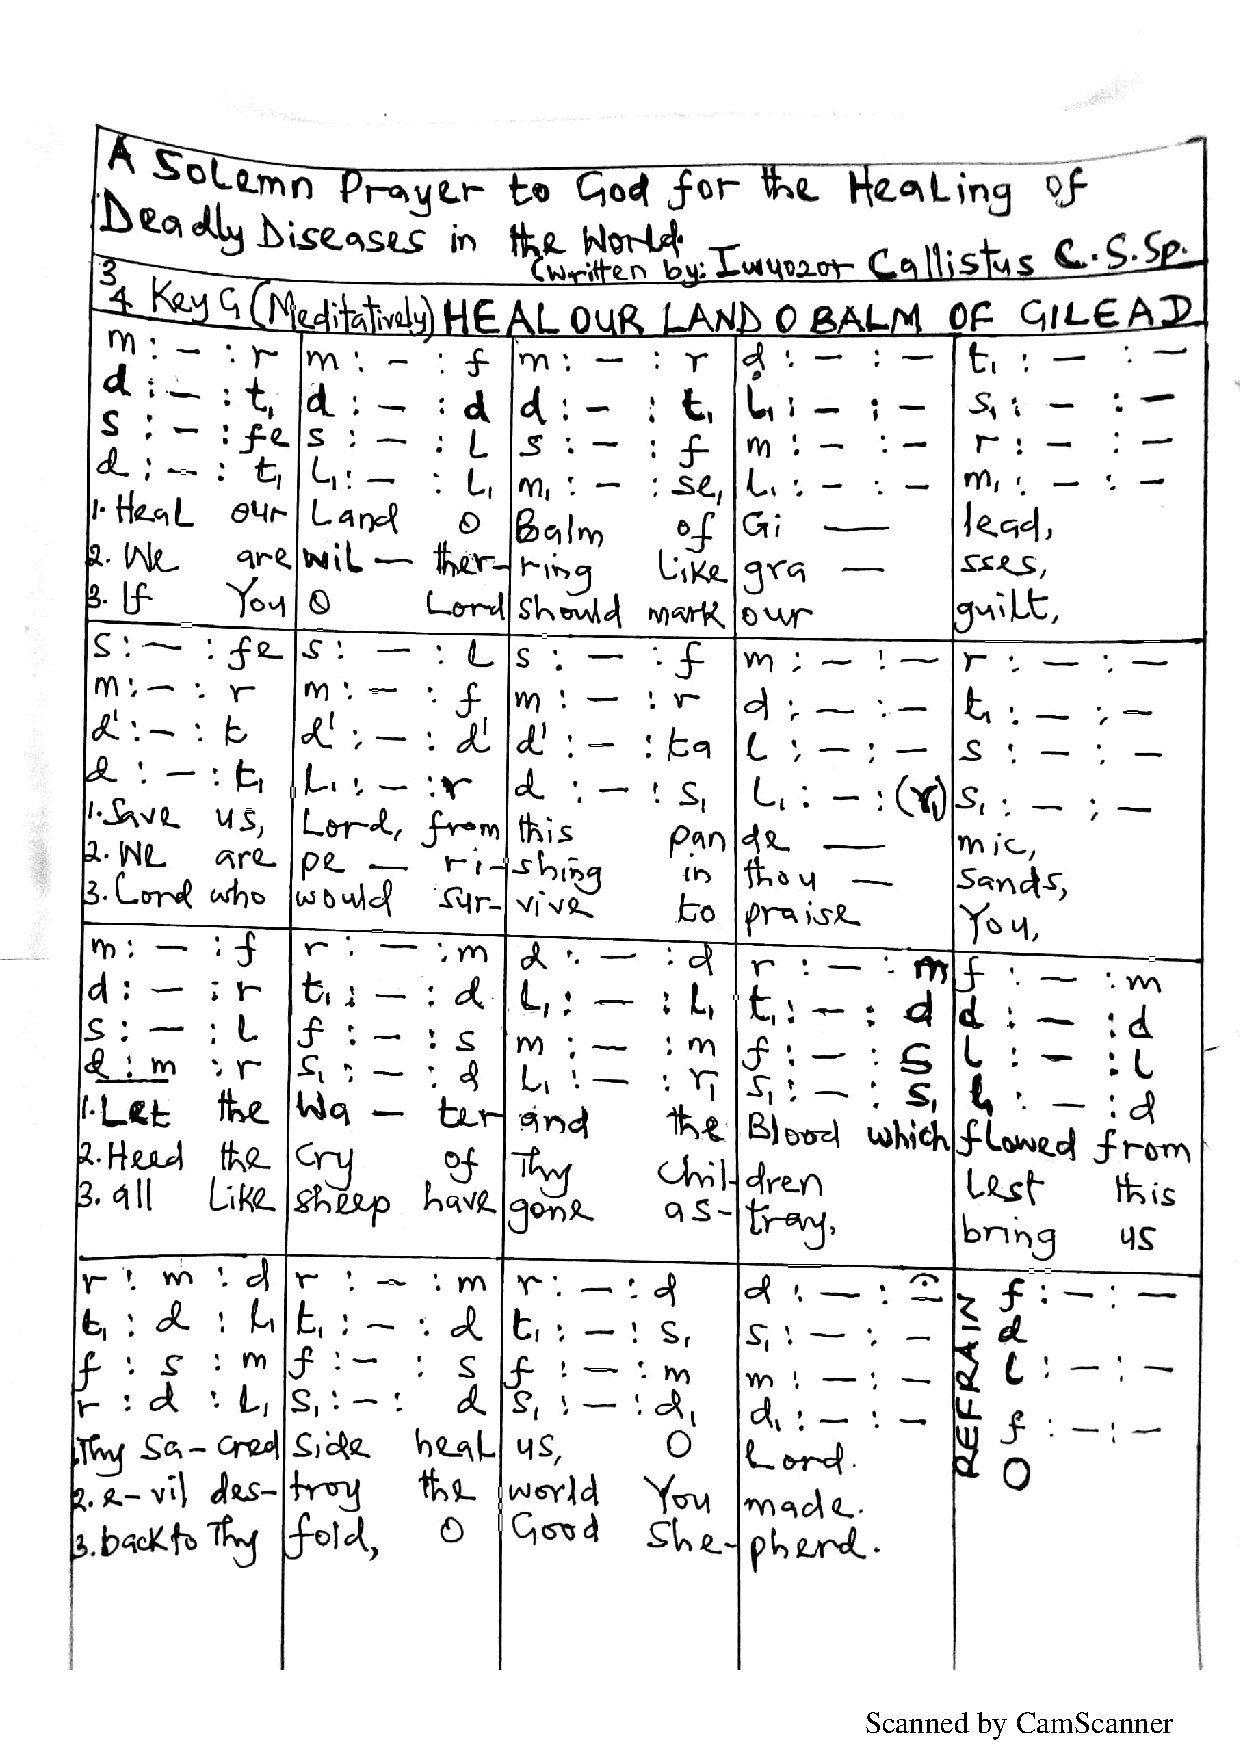 A Solemn Prayer to God for the Healing of
Deadly Diseases in the World.
(written by: Iwuozor Callistus C.S.Sp.
3/4 Key G (Meditatively) HEAL OUR LAND O BALM OF GILEAD
m : – : r | m : – : f | m : – : r | d : – : – | t₁ : – : –
d : – : t₁ | d : – : d | d : – : t₁ | l₁ : – : – | s₁ : – : –
s : – : fe | s : – : l | s : – : f | m : – : – | r : – : –
d : – : t₁ | l₁ : – : l₁ | m₁ : – : se₁ | l₁ : – : – | m₁ : – : –
1. Heal our | Land O | Balm of | Gi — | lead,
2. We are | wil — ther- | ring like | gra — | sses,
3. If You | O Lord | should mark | our | guilt,
s : – : fe | s : – : l | s : – : f | m : – : – | r : – : –
m : – : r | m : – : f | m : – : r | d : – : – | t₁ : – : –
d' : – : t | d' : – : d' | d' : – : ta | l : – : – | s : – : –
d : – : t₁ | l₁ : – : r | d : – : s₁ | l₁ : – : (r₁) | s₁ : – : –
1. Save us, | Lord, from | this pan | de — | mic,
2. We are | pe — ri- | shing in | thou — | sands,
3. Lord who | would sur- | vive to | praise | You,
m : – : f | r : – : m | d : – : d | r : – : m | f : – : m
d : – : r | t₁ : – : d | l₁ : – : l₁ | t₁ : – : d | d : – : d
s : – : l | f : – : s | m : – : m | f : – : s | l : – : l
d : m : r | s₁ : – : d | l₁ : – : r₁ | s₁ : – : s₁ | l₁ : – : d
1. Let the | Wa – ter | and the | Blood which | flowed from
2. Heed the | cry of | Thy chil- | dren | lest this
3. all like | sheep have | gone as- | tray, | bring us
r : m : d | r : – : m | r : – : d | d : – : – | REFRAIN f : – : –
t₁ : d : l₁ | t₁ : – : d | t₁ : – : s₁ | s₁ : – : – | d
f : s : m | f : – : s | f : – : m | m : – : – | l : – : –
r : d : l₁ | s₁ : – : d | s₁ : – : d₁ | d₁ : – : – | f : – : –
1. Thy Sa – cred | side heal | us, O | Lord. | O
2. e – vil des- | troy the | world You | made.
3. back to Thy | fold, O | Good She- | pherd.
Scanned by CamScanner